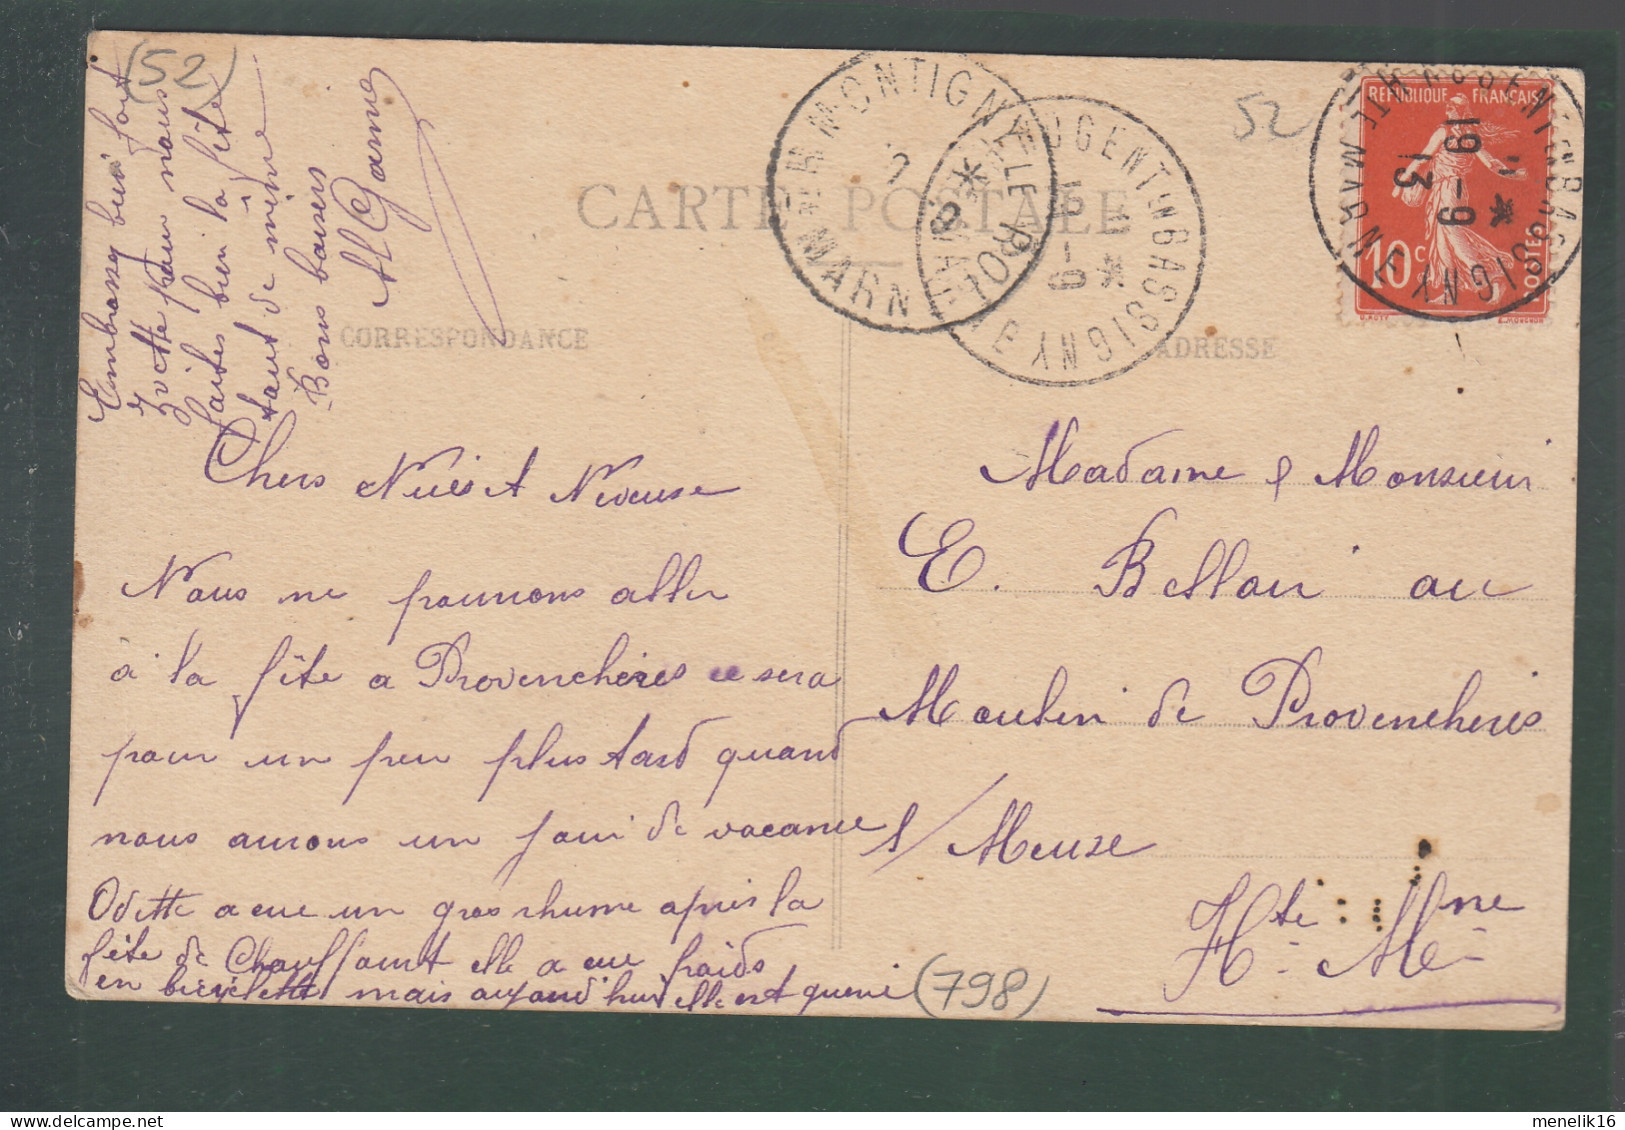 (52)
52
CARTE POSTALE
CORRESPONDANCE
ADRESSE
REPUBLIQUE FRANÇAISE
10c
POSTES
NOGENT-EN-BASSIGNY HTE MARNE
19 - 9
13
NOGENT-EN-BASSIGNY
MONTIGNY-LE-ROI
HTE MARNE
Embrassez bien fort
Yvette pour nous
faites bien la fête
tant de même
Bons baisers
Chers Nièce et Neveux
Nous ne pourrons aller
à la fête a Provenchères ce sera
pour un peu plus tard quand
nous aurons un jour de vacance
Odette a eue un gros rhume après la
fête de Chauffourt elle a eue froids
en bicyclette mais aujourd'hui elle est guerie
(798)
Madame & Monsieur
E. Belloir au
Moulin de Provencheres
s/ Meuse
Hte - Mne -
menelik16